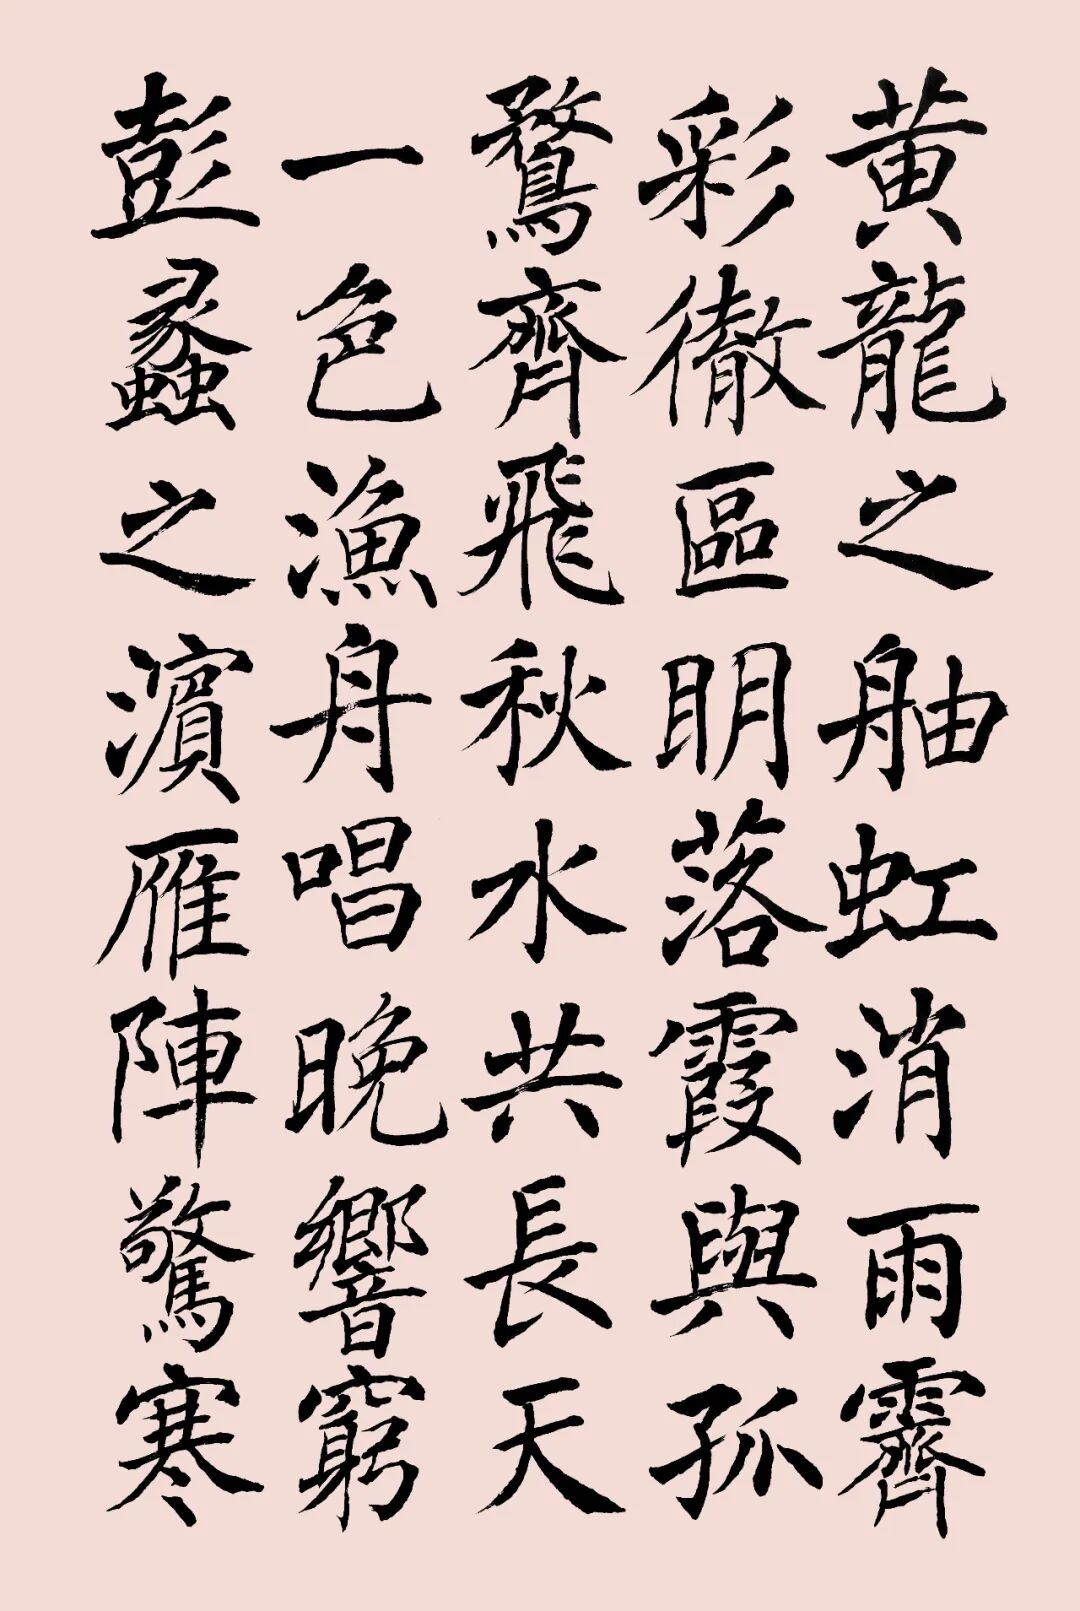 黄龍之舳虹消雨霽
彩徹區明落霞與孤
鶩齊飛秋水共長天
一色漁舟唱晚響窮
彭蠡之濵雁陣驚寒